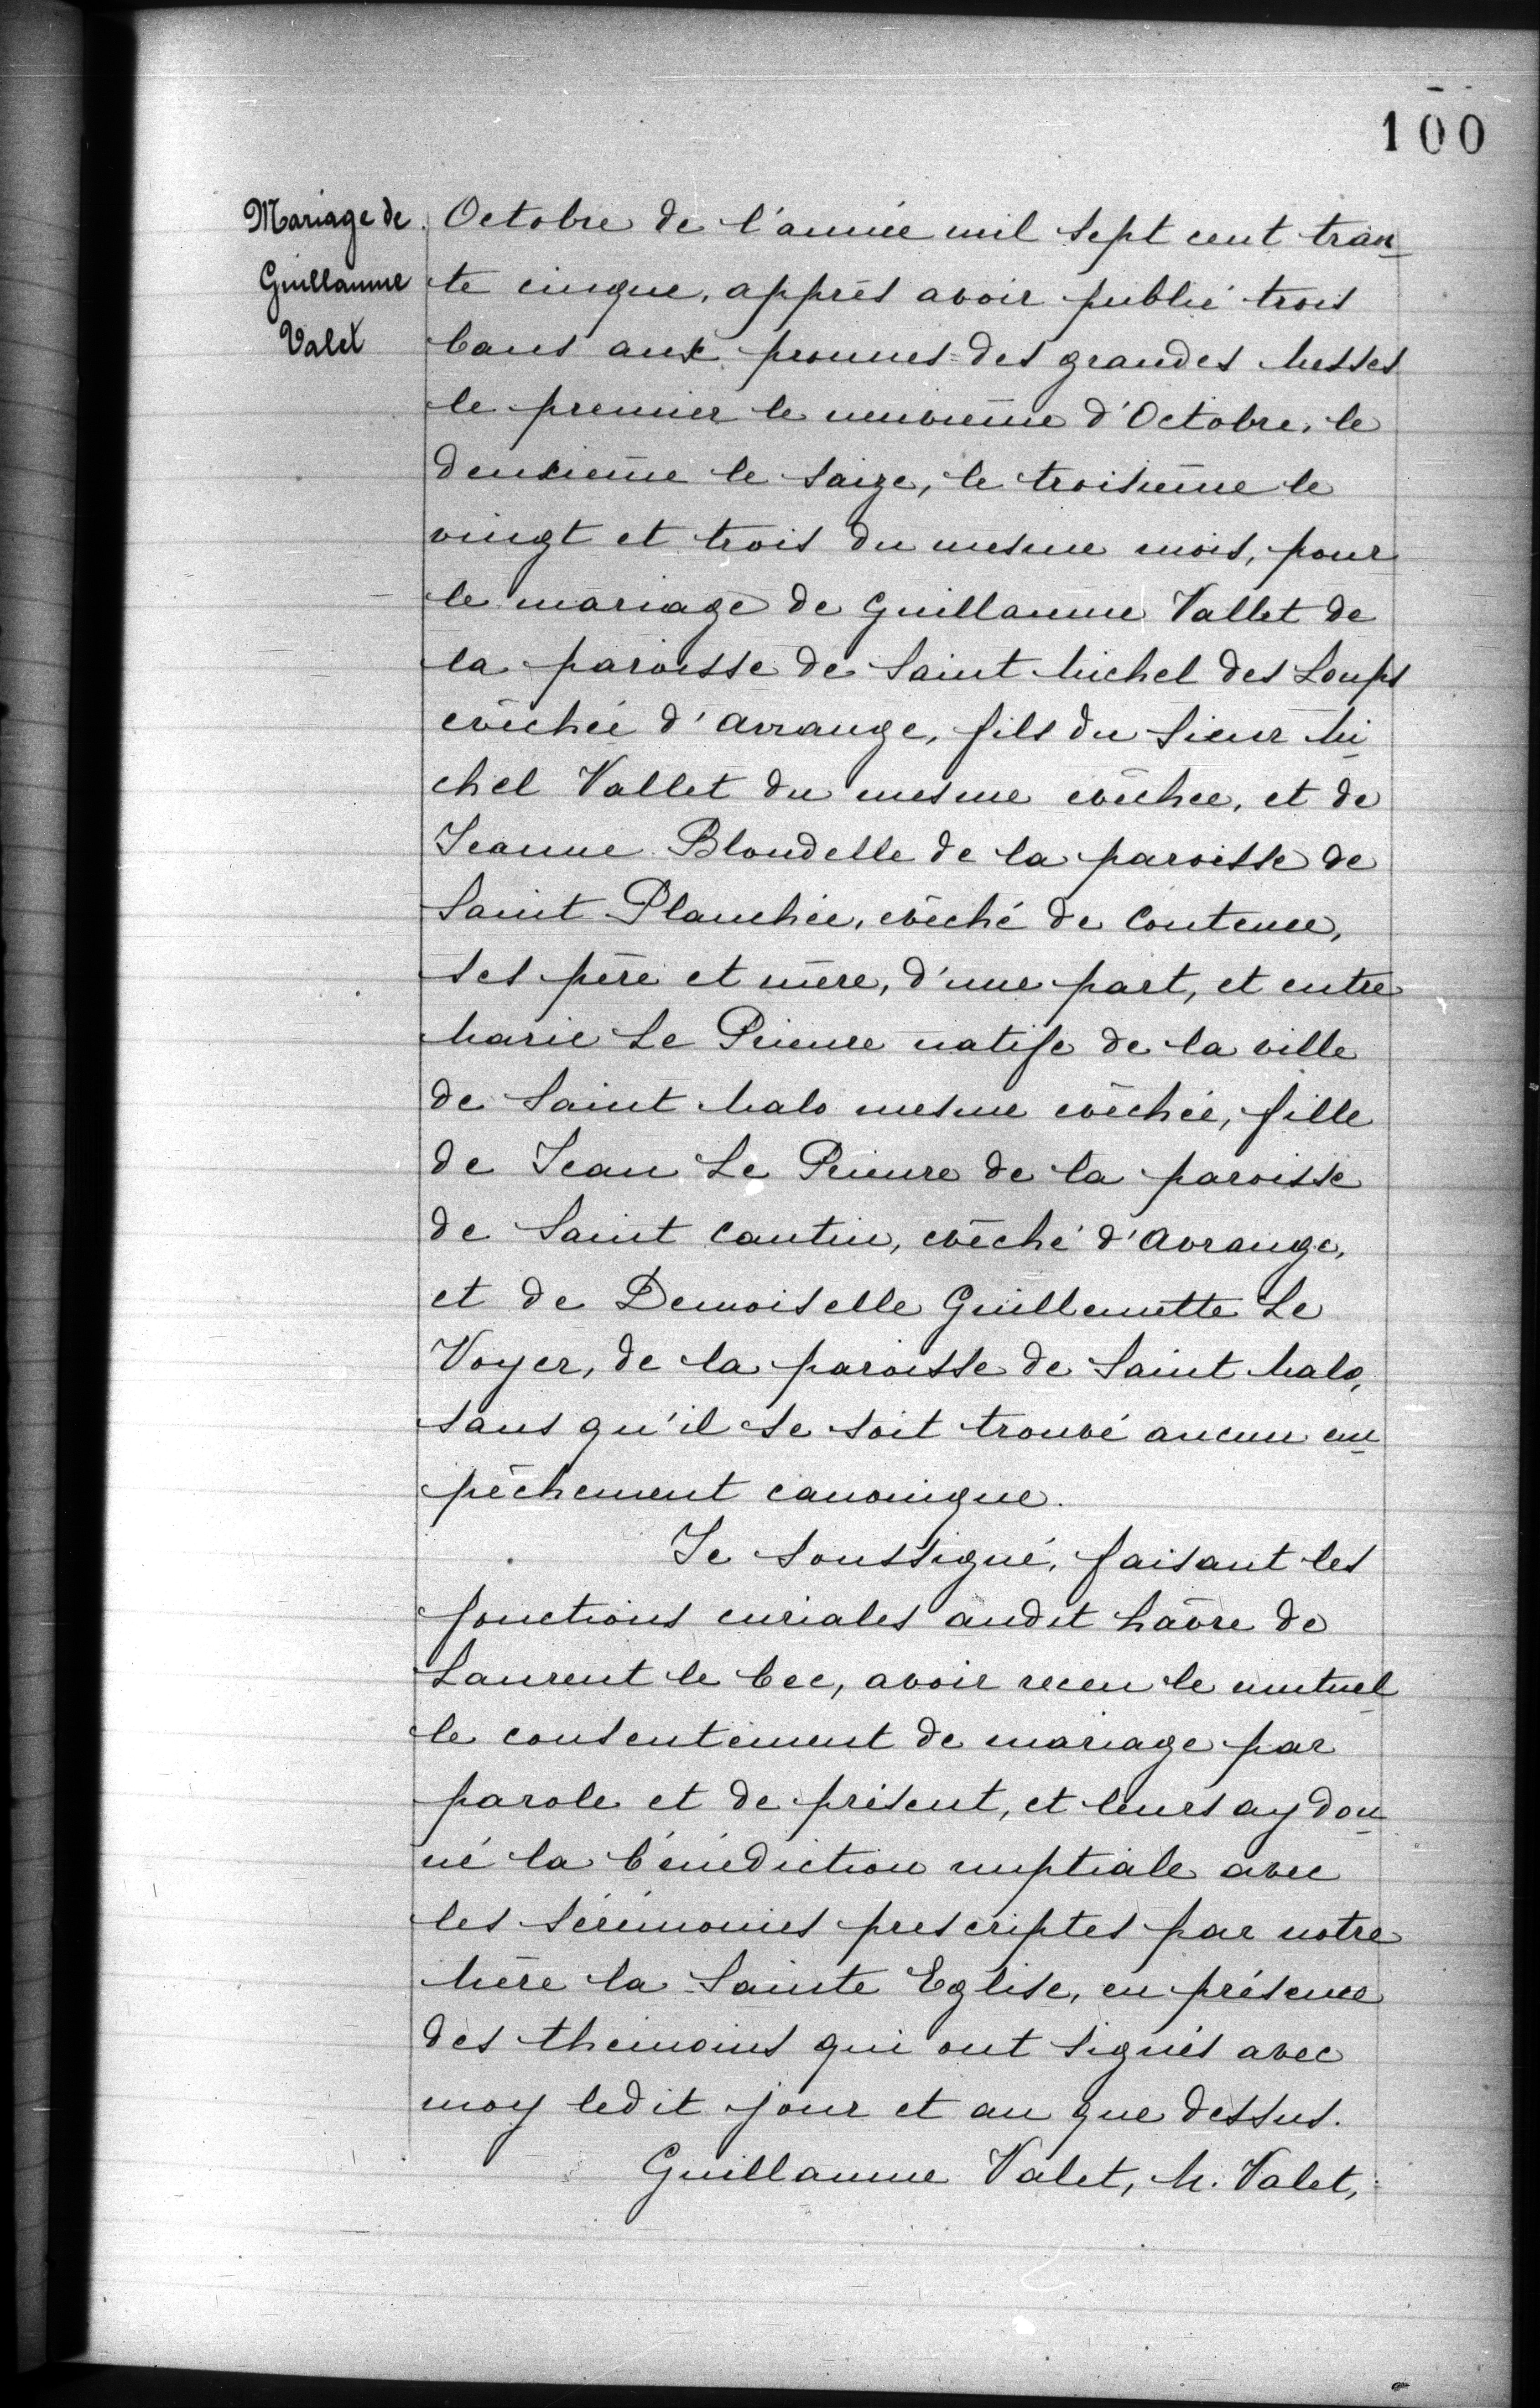 100
Mariage de
Guillaume
Valet
Octobre de l'année mil sept cent tran
te cinque, apprés avoir publié trois
bans aux pronnes des grandes Messes
le premier le neuvième d'Octobre, le
deuxième le saize, le troisième le
vingt et trois du mesme mois, pour
le mariage de Guillaume Vallet de
la paroisse de Saint Michel des Loups
evêchée d'Avrange, fils du Sieur Mi
chel Vallet du mesme evêchee, et de
Jeanne Blondelle de la paroisse de
Saint Planchée, evêché de Coutence,
ses père et mère, d'une part, et entre
Marie Le Prieure natife de la ville
de Saint Malo mesme evêchée, fille
de Jean Le Prieure de la paroisse
de Saint Cantin, evêché d'Avrange,
et de Demoiselle Guillemette Le
Voyer, de la paroisse de Saint Malo,
sans qu'il se soit trouvé aucun em
pêchement canonique.
Je soussigné, faisant les
fonctions curiales audit hâvre de
Laurent le bec, avoir receu le mutuel
le consentement de mariage par
parole et de présent, et leurs ay don
né la bénédiction nuptiale avec
les sérémonies prescriptes par notre
Mère la Sainte Eglise, en présence
des themoins qui ont signés avec
moy ledit jour et an que dessus.
Guillaume Valet, M. Valet,